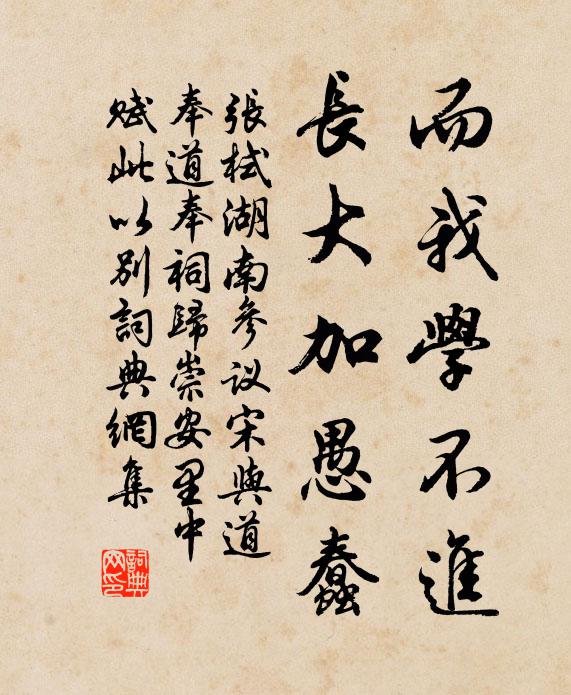 而我學不進
長大加愚蠢
張栻湖南參议宋與道
奉道奉祠歸崇安里中
赋此以别詞典網集
詞典
网印